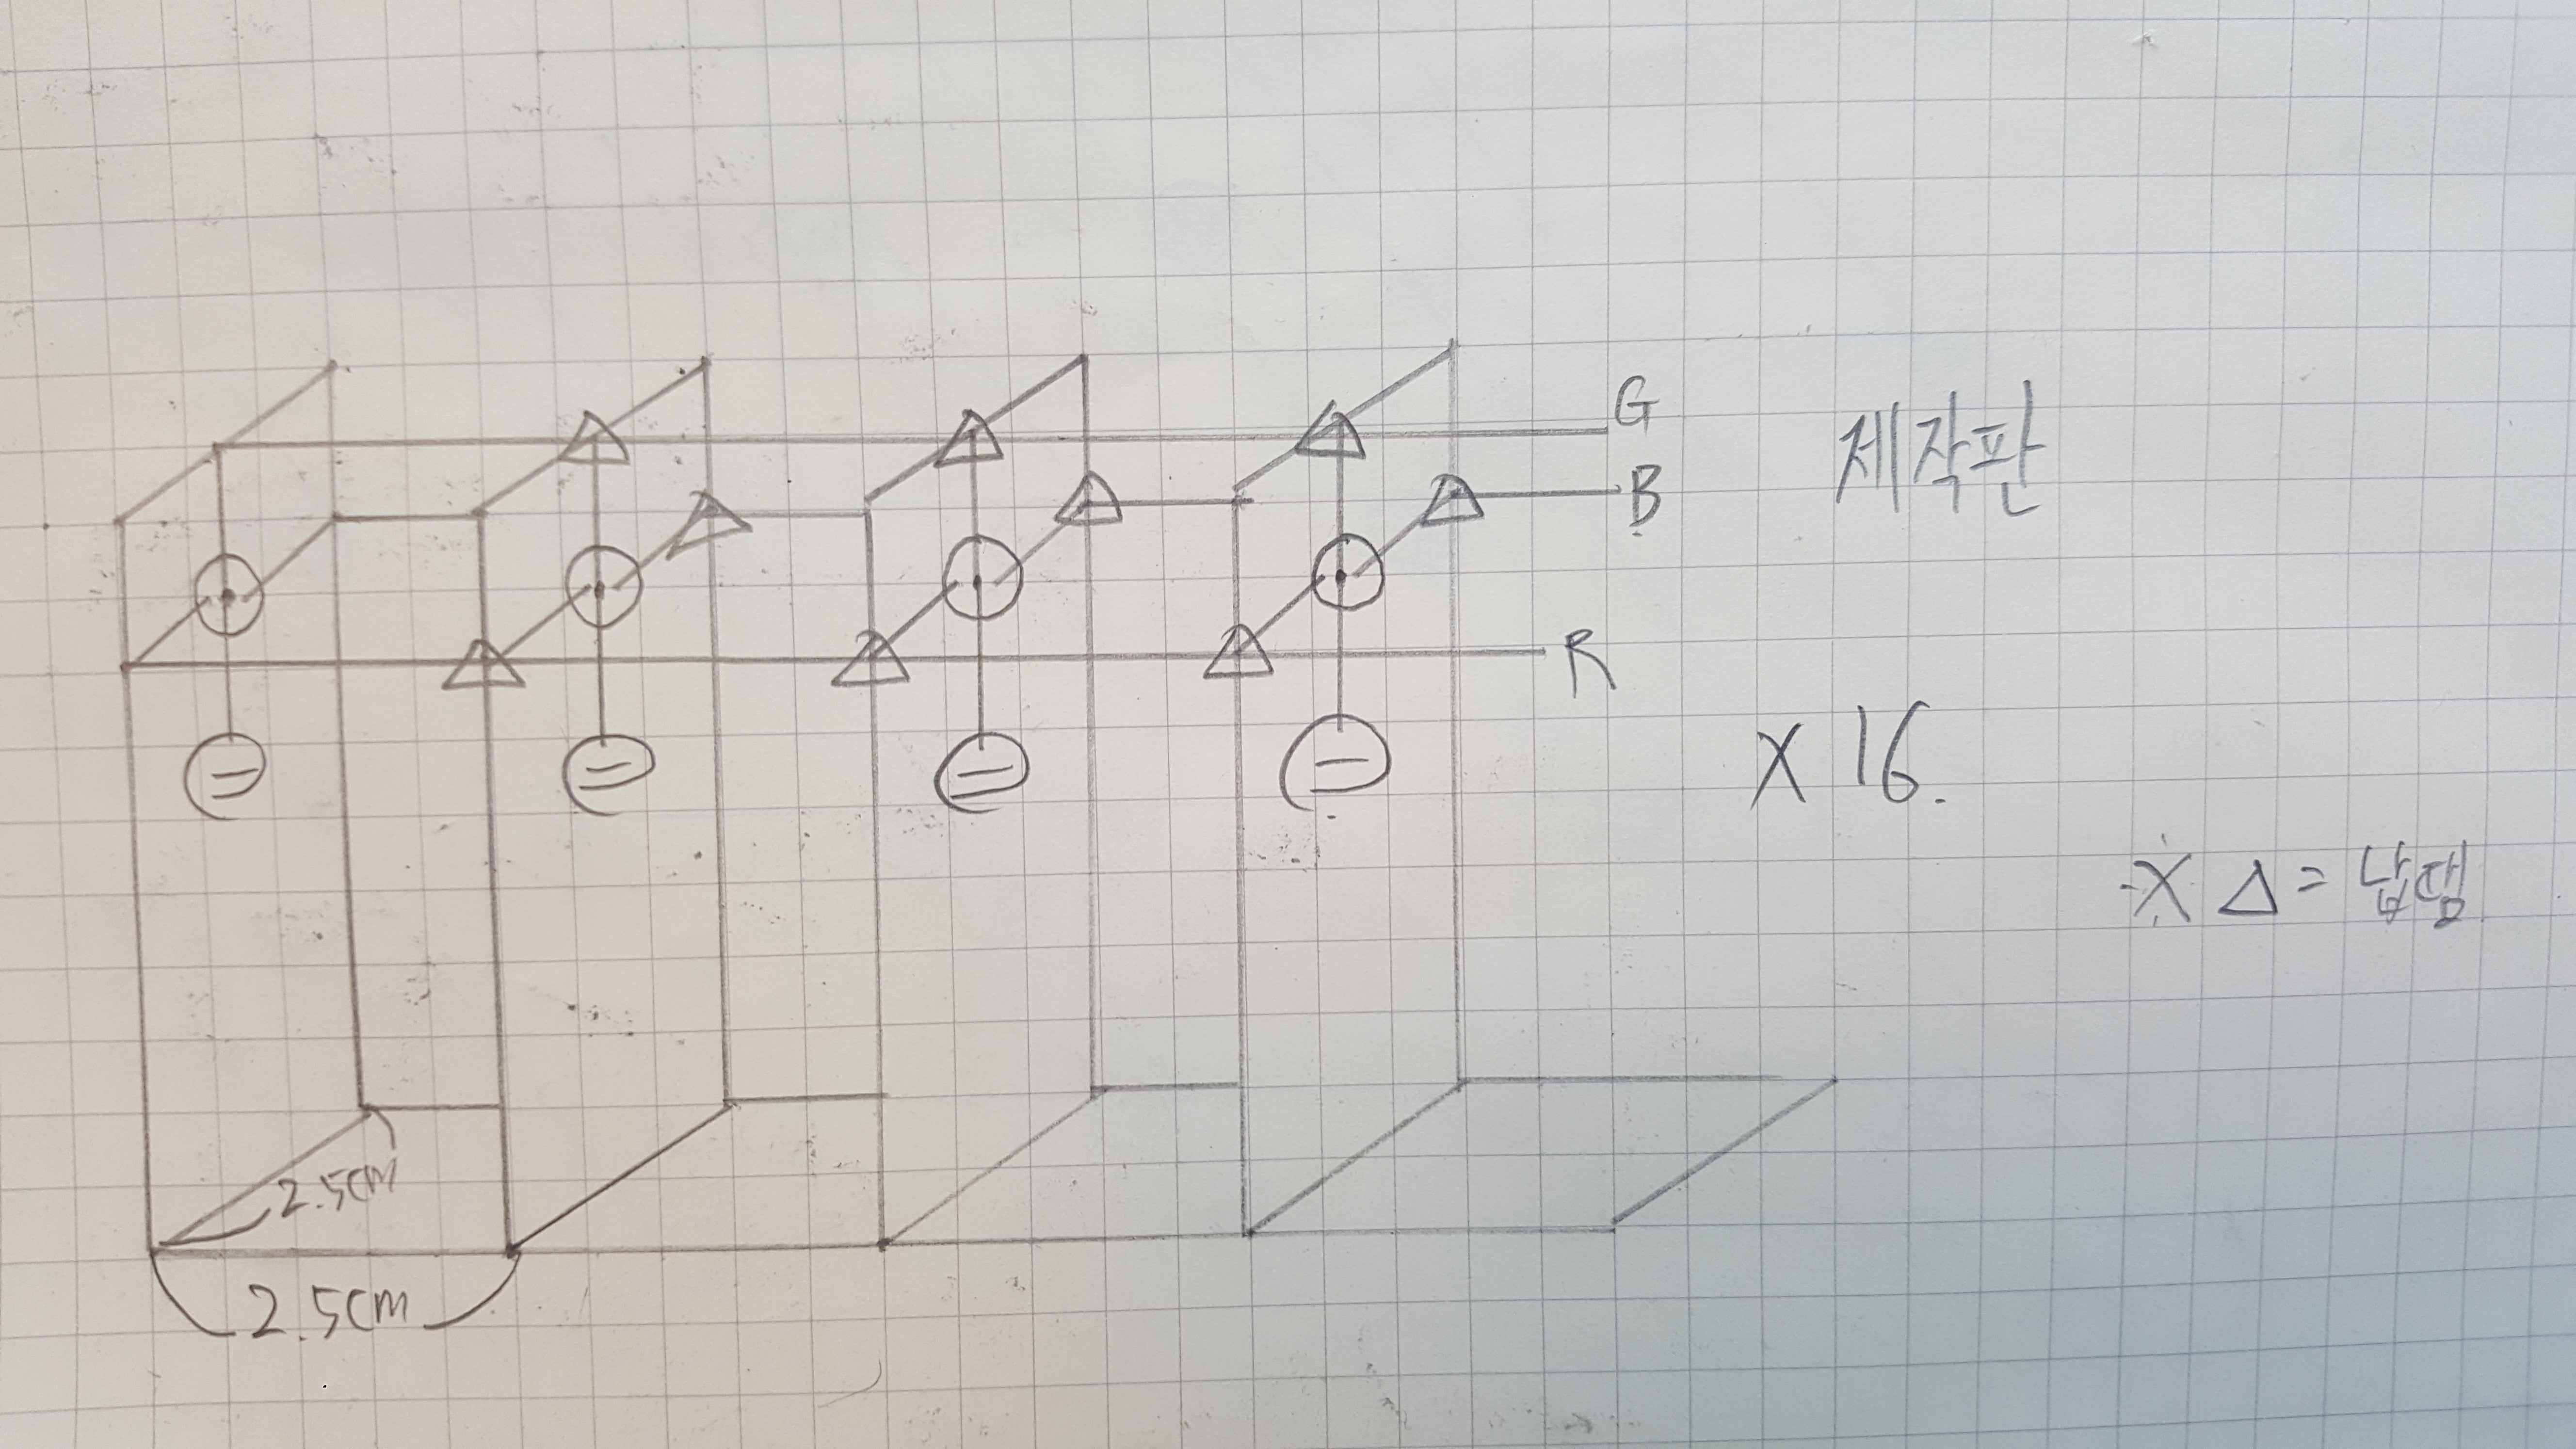 G
B
제작판
R
X 16.
※ △ = 납땜
2.5cm
2.5cm